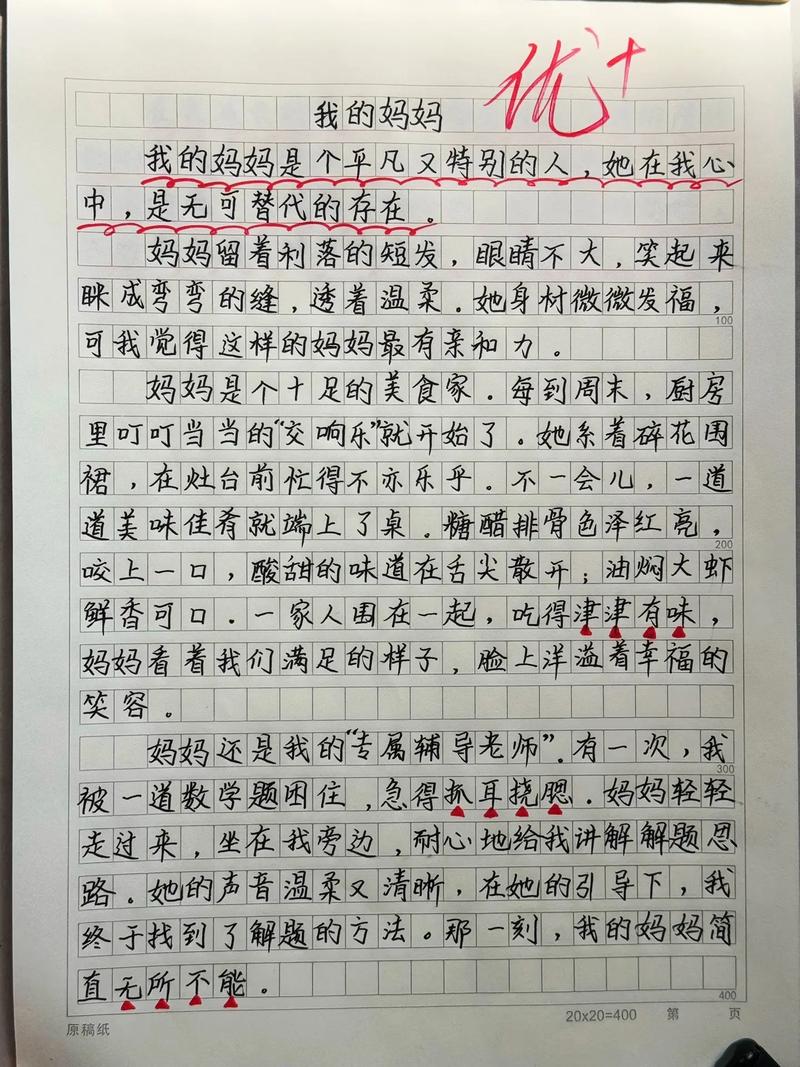 优+
我的妈妈
我的妈妈是个平凡又特别的人，她在我心
中，是无可替代的存在。
妈妈留着利落的短发，眼睛不大，笑起来
眯成弯弯的缝，透着温柔。她身材微微发福，
100
可我觉得这样的妈妈最有亲和力。
妈妈是个十足的美食家。每到周末，厨房
里叮叮当当的“交响乐”就开始了。她系着碎花围
裙，在灶台前忙得不亦乐乎。不一会儿，一道
道美味佳肴就端上了桌。糖醋排骨色泽红亮，
200
咬上一口，酸甜的味道在舌尖散开；油焖大虾
鲜香可口。一家人围在一起，吃得津津有味，
妈妈看着我们满足的样子，脸上洋溢着幸福的
笑容。
妈妈还是我的“专属辅导老师”。有一次，我
300
被一道数学题困住，急得抓耳挠腮。妈妈轻轻
走过来，坐在我旁边，耐心地给我讲解解题思
路。她的声音温柔又清晰，在她的引导下，我
终于找到了解题的方法。那一刻，我的妈妈简
直无所不能。
400
原稿纸 20×20=400 第 页